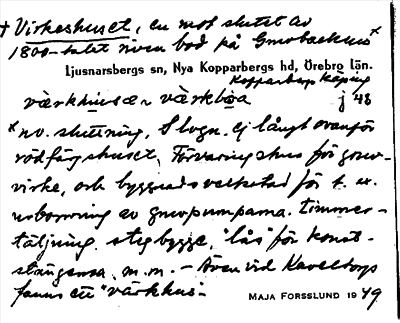 + Virkeshuset, en mot slutet av
1800-talet riven bod på Gruvbackens
Ljusnarsbergs sn, Nya Kopparbergs hd, Örebro län.
Kopparbergs köping
værkhusæn værkboa j 48
x nv. sluttning, S logn. ej långt ovanför
rödfärgshuset. Förvaringshus för gruv-
virke, och byggnadsverkstad för t. ex.
urborrning av gruvpumparna. timmer-
täljning. stegbygge, "lås" för konst-
stängerna m.m. - Även vid Kaveltorp
fanns ett "värkhus".
MAJA FORSSLUND 1949